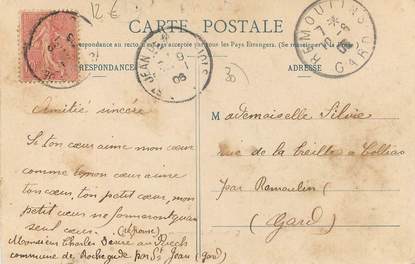 12 €
CARTE POSTALE
pondance au recto n'est pas acceptée par tous les Pays Etrangers. (Se renseigner à la Poste
RESPONDANCE
ADRESSE
REMOULINS
GARD
ST JEAN
30
Amitié sincère
Si ton cœur aime mon cœur
comme mon cœur aime
ton cœur, ton petit cœur, mon
petit cœur ne formeront qu'un
seul cœur. (réponse)
Monsieur Charles au
commune de Rochegude par St Jean (Gard)
Mademoiselle Silvie
rue de la Vieille à Collias
par Remoulin
(Gard)